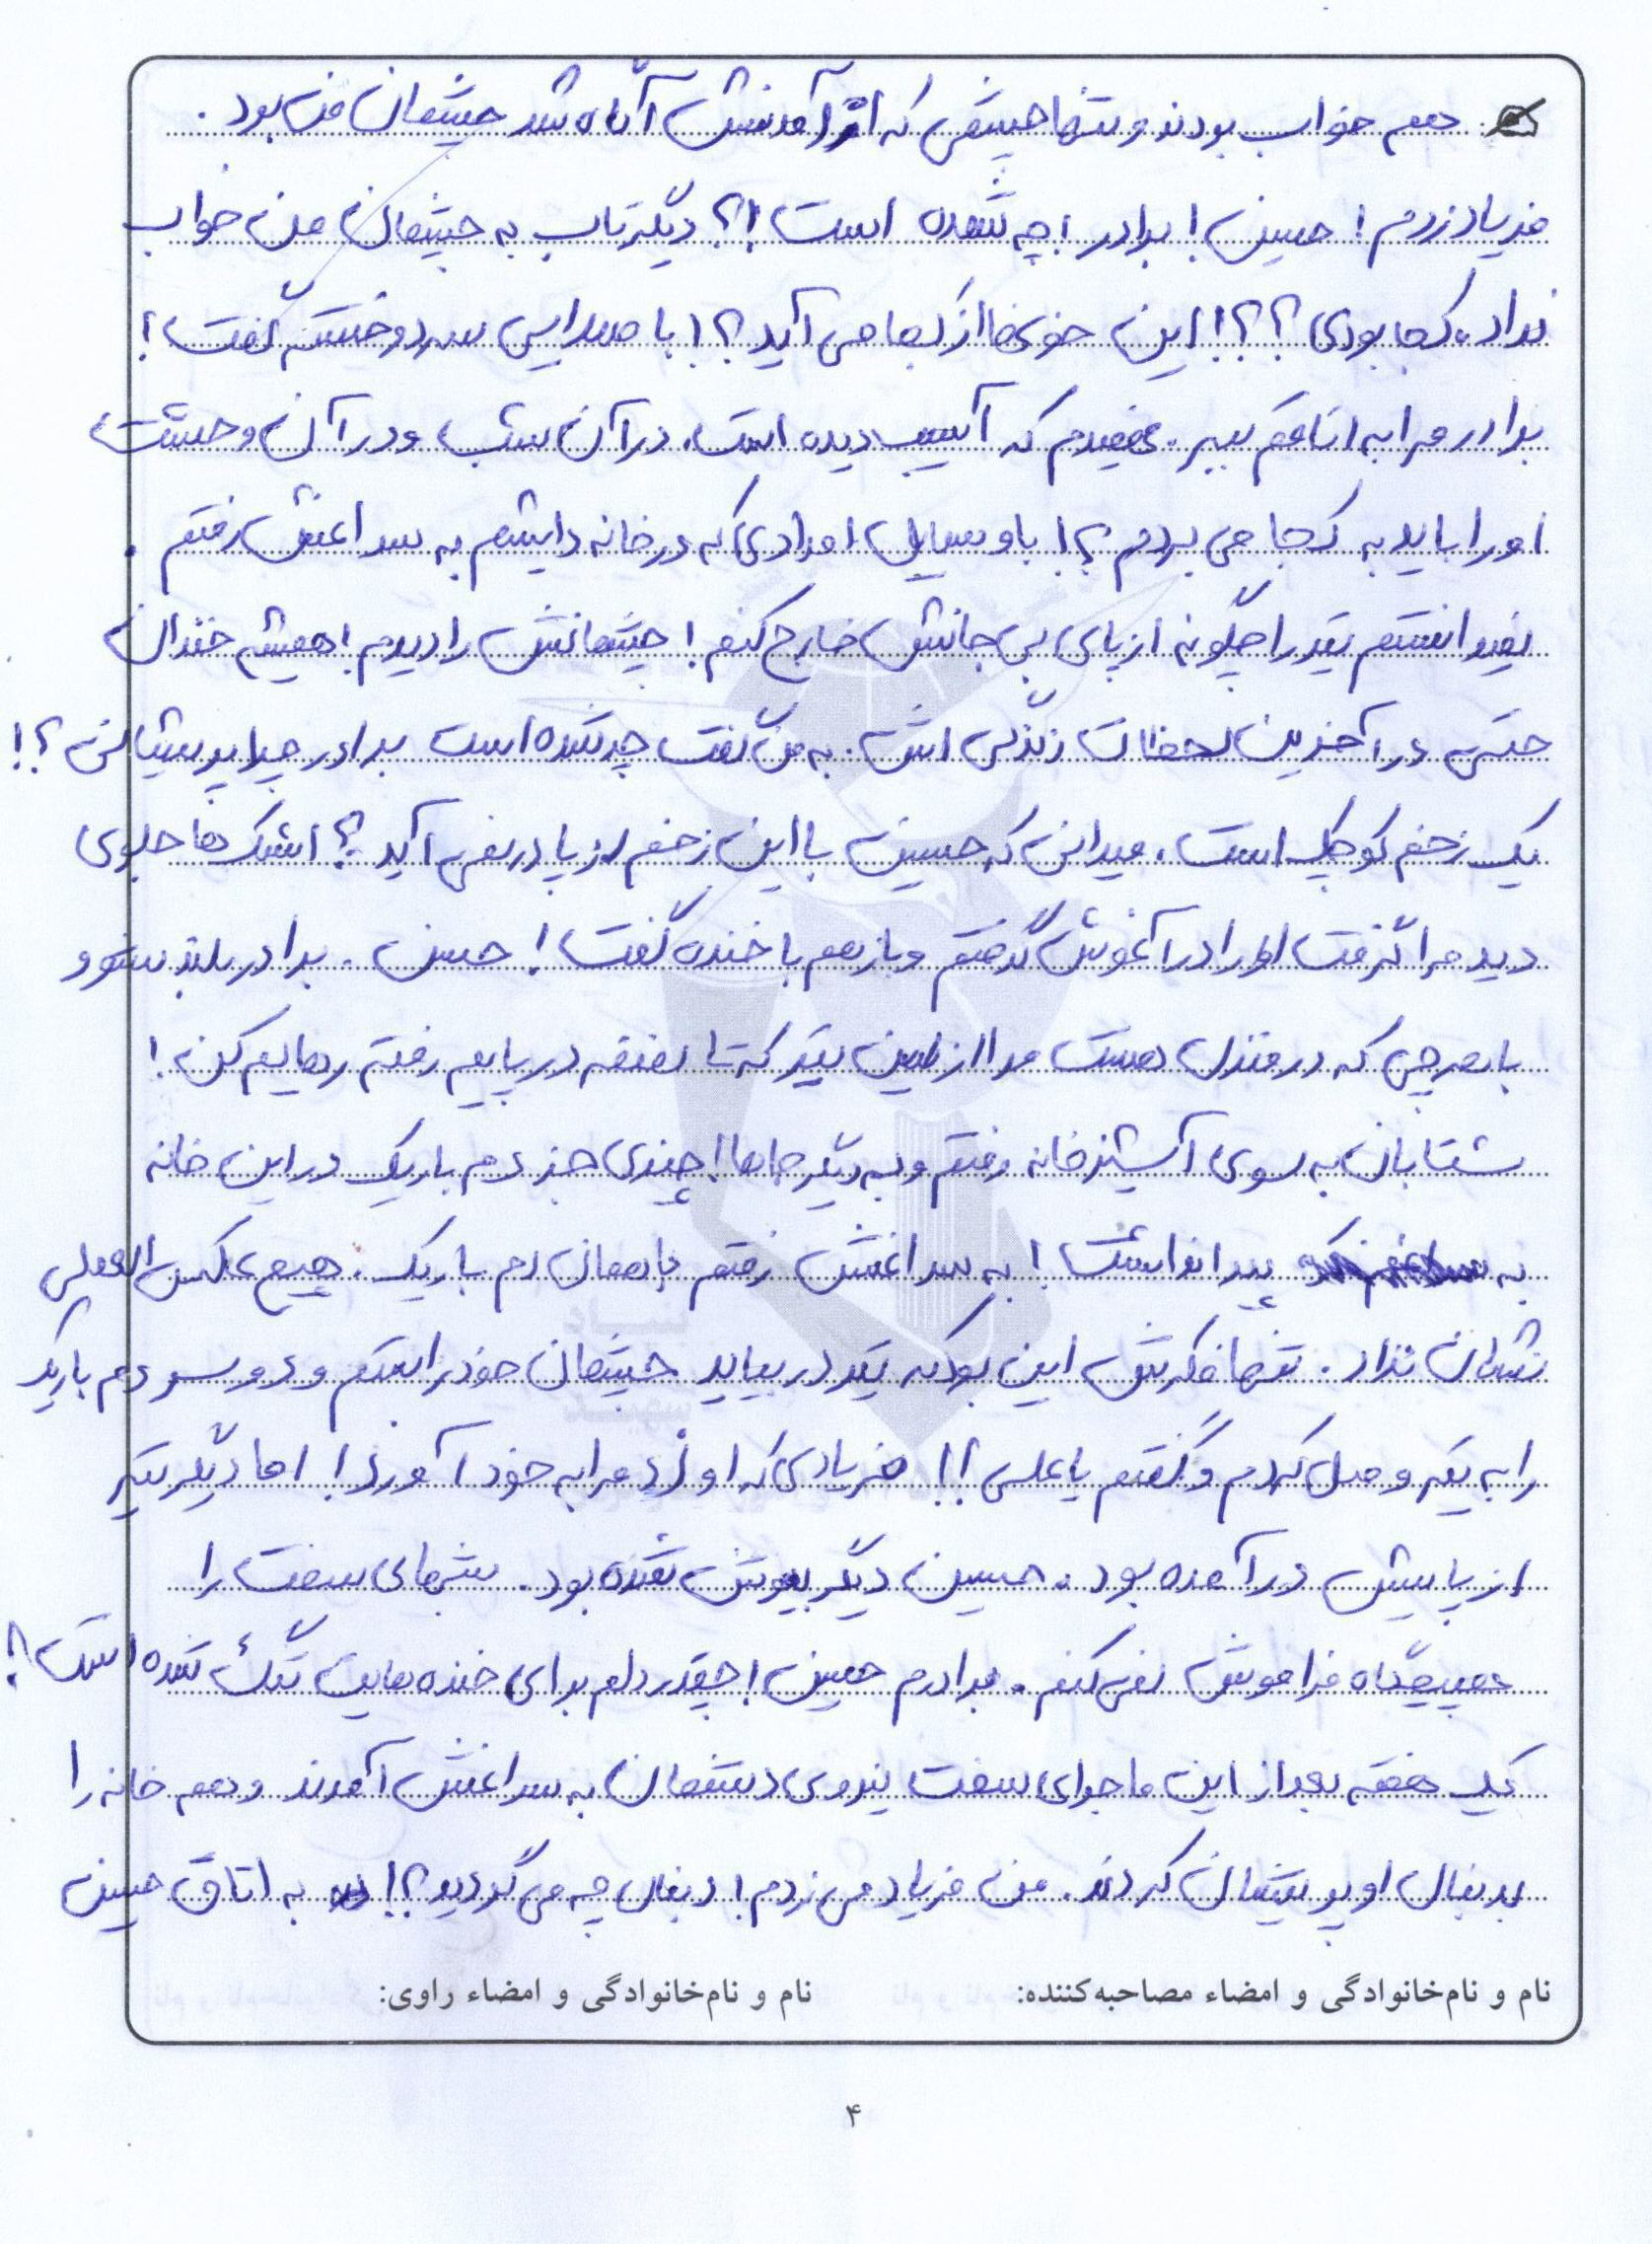 همه خواب بودند و تنها چشمی که از آمدنش آگاه شد چشمان من بود.
فریاد زدم! حسین! برادر! چه شده است!؟ دیگر تاب به چشمان من خواب
نداد، کجا بودی؟؟؟! این خون‌ها از کجا می آید؟! با صدایی سرد و خسته گفت!
برادر مرا به اتاقم ببر. فهمیدم که آسیب دیده است. در آن شب و در آن وحشت
او را باید به کجا می بردم؟! با وسایل امدادی که در خانه داشتم به سراغش رفتم.
نمیدانستم تیر را چگونه از پای بی جانش خارج کنم! چشمانش را دیدم! همیشه خندان
حتی در آخرین لحظات زندگی اش. به من گفت چه شده است برادر چرا پریشانی؟!
یک زخم کوچک است، میدانی که حسین با این زخم از پا در نمی آید؟ اشک ها جلوی
دید مرا گرفت او را در آغوش گرفتم و باز هم با خنده گفت! حسن. برادر بلند شو و
با هر چی که در منزل هست مرا از این تیر که تا در پایم رفته رهایم کن!
شتابان به سوی آشپزخانه رفتم و به دیگر جاها! چیزی جز دم باریک در این خانه
به پیدا نداشت! به سراغش رفتم با همان دم باریک. هیچ عکس العملی
نشان نداد. تنها فکرش این بود که تیر در بیاید چشمان خود را بستم و دو سر دم باریک
را به تیر وصل کردم و گفتم یا علی!! فریادی که او زد مرا به خود آورد! اما دیگر تیر
از پایش در آمده بود. حسین دیگر بیهوش شده بود. شبهای سخت را
هیچگاه فراموش نمی کنم. برادرم حسین! چقدر دلم برای خنده هایت تنگ شده است!؟
یک هفته بعد از این ماجرای سخت نیروی دشمنان به سراغش آمدند و همه خانه را
بدنبال او پریشان کردند. من فریاد می زدم! دنبال چه می گردید؟! به اتاق حسین
نام و نام‌خانوادگی و امضاء مصاحبه‌کننده: نام و نام‌خانوادگی و امضاء راوی:
۴